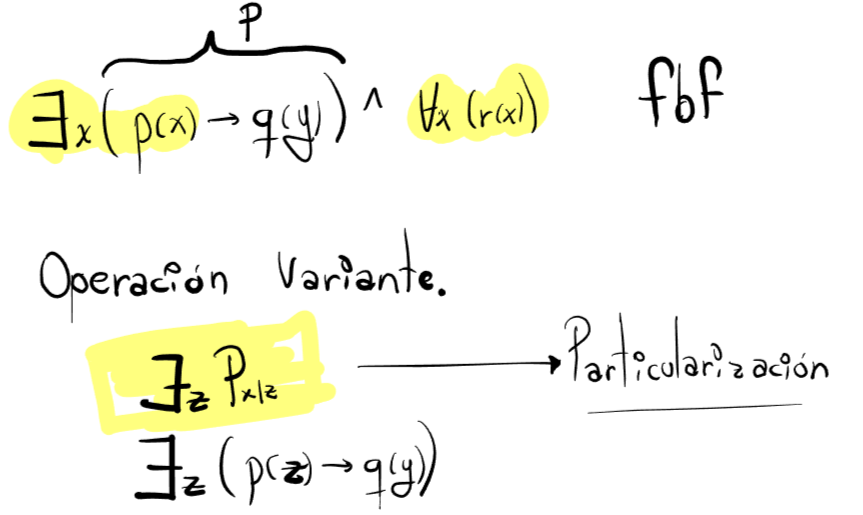 P
∃x(p(x)→q(y)) ∧ ∀x(r(x)) fbf
Operación Variante.
∃z Px|z → Particularización
∃z(p(z)→q(y))